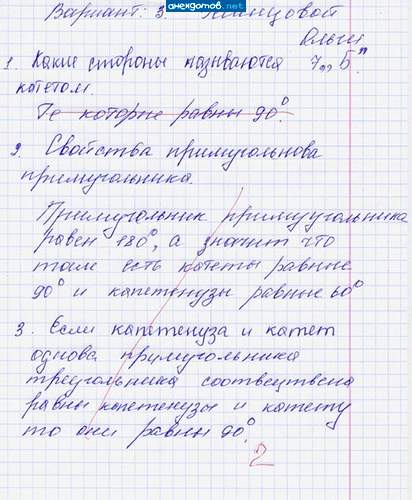 анекдотов.net
Вариант: 3.
Ольги
1. Какие стороны называются 7 „Б"
котетом.
Те которые равны 90°.
2. Свойства примуголънова
примуголъника.
Примуголъник примууголъника
равен 180°, а значит что
там есть котеты равные
90° и капетенузы равные 60°
3. Если капетенуза и катет
однова примуголъника
треуголъника соотвецтвена
равны капетенузы и катету
то они равны 90°.
2